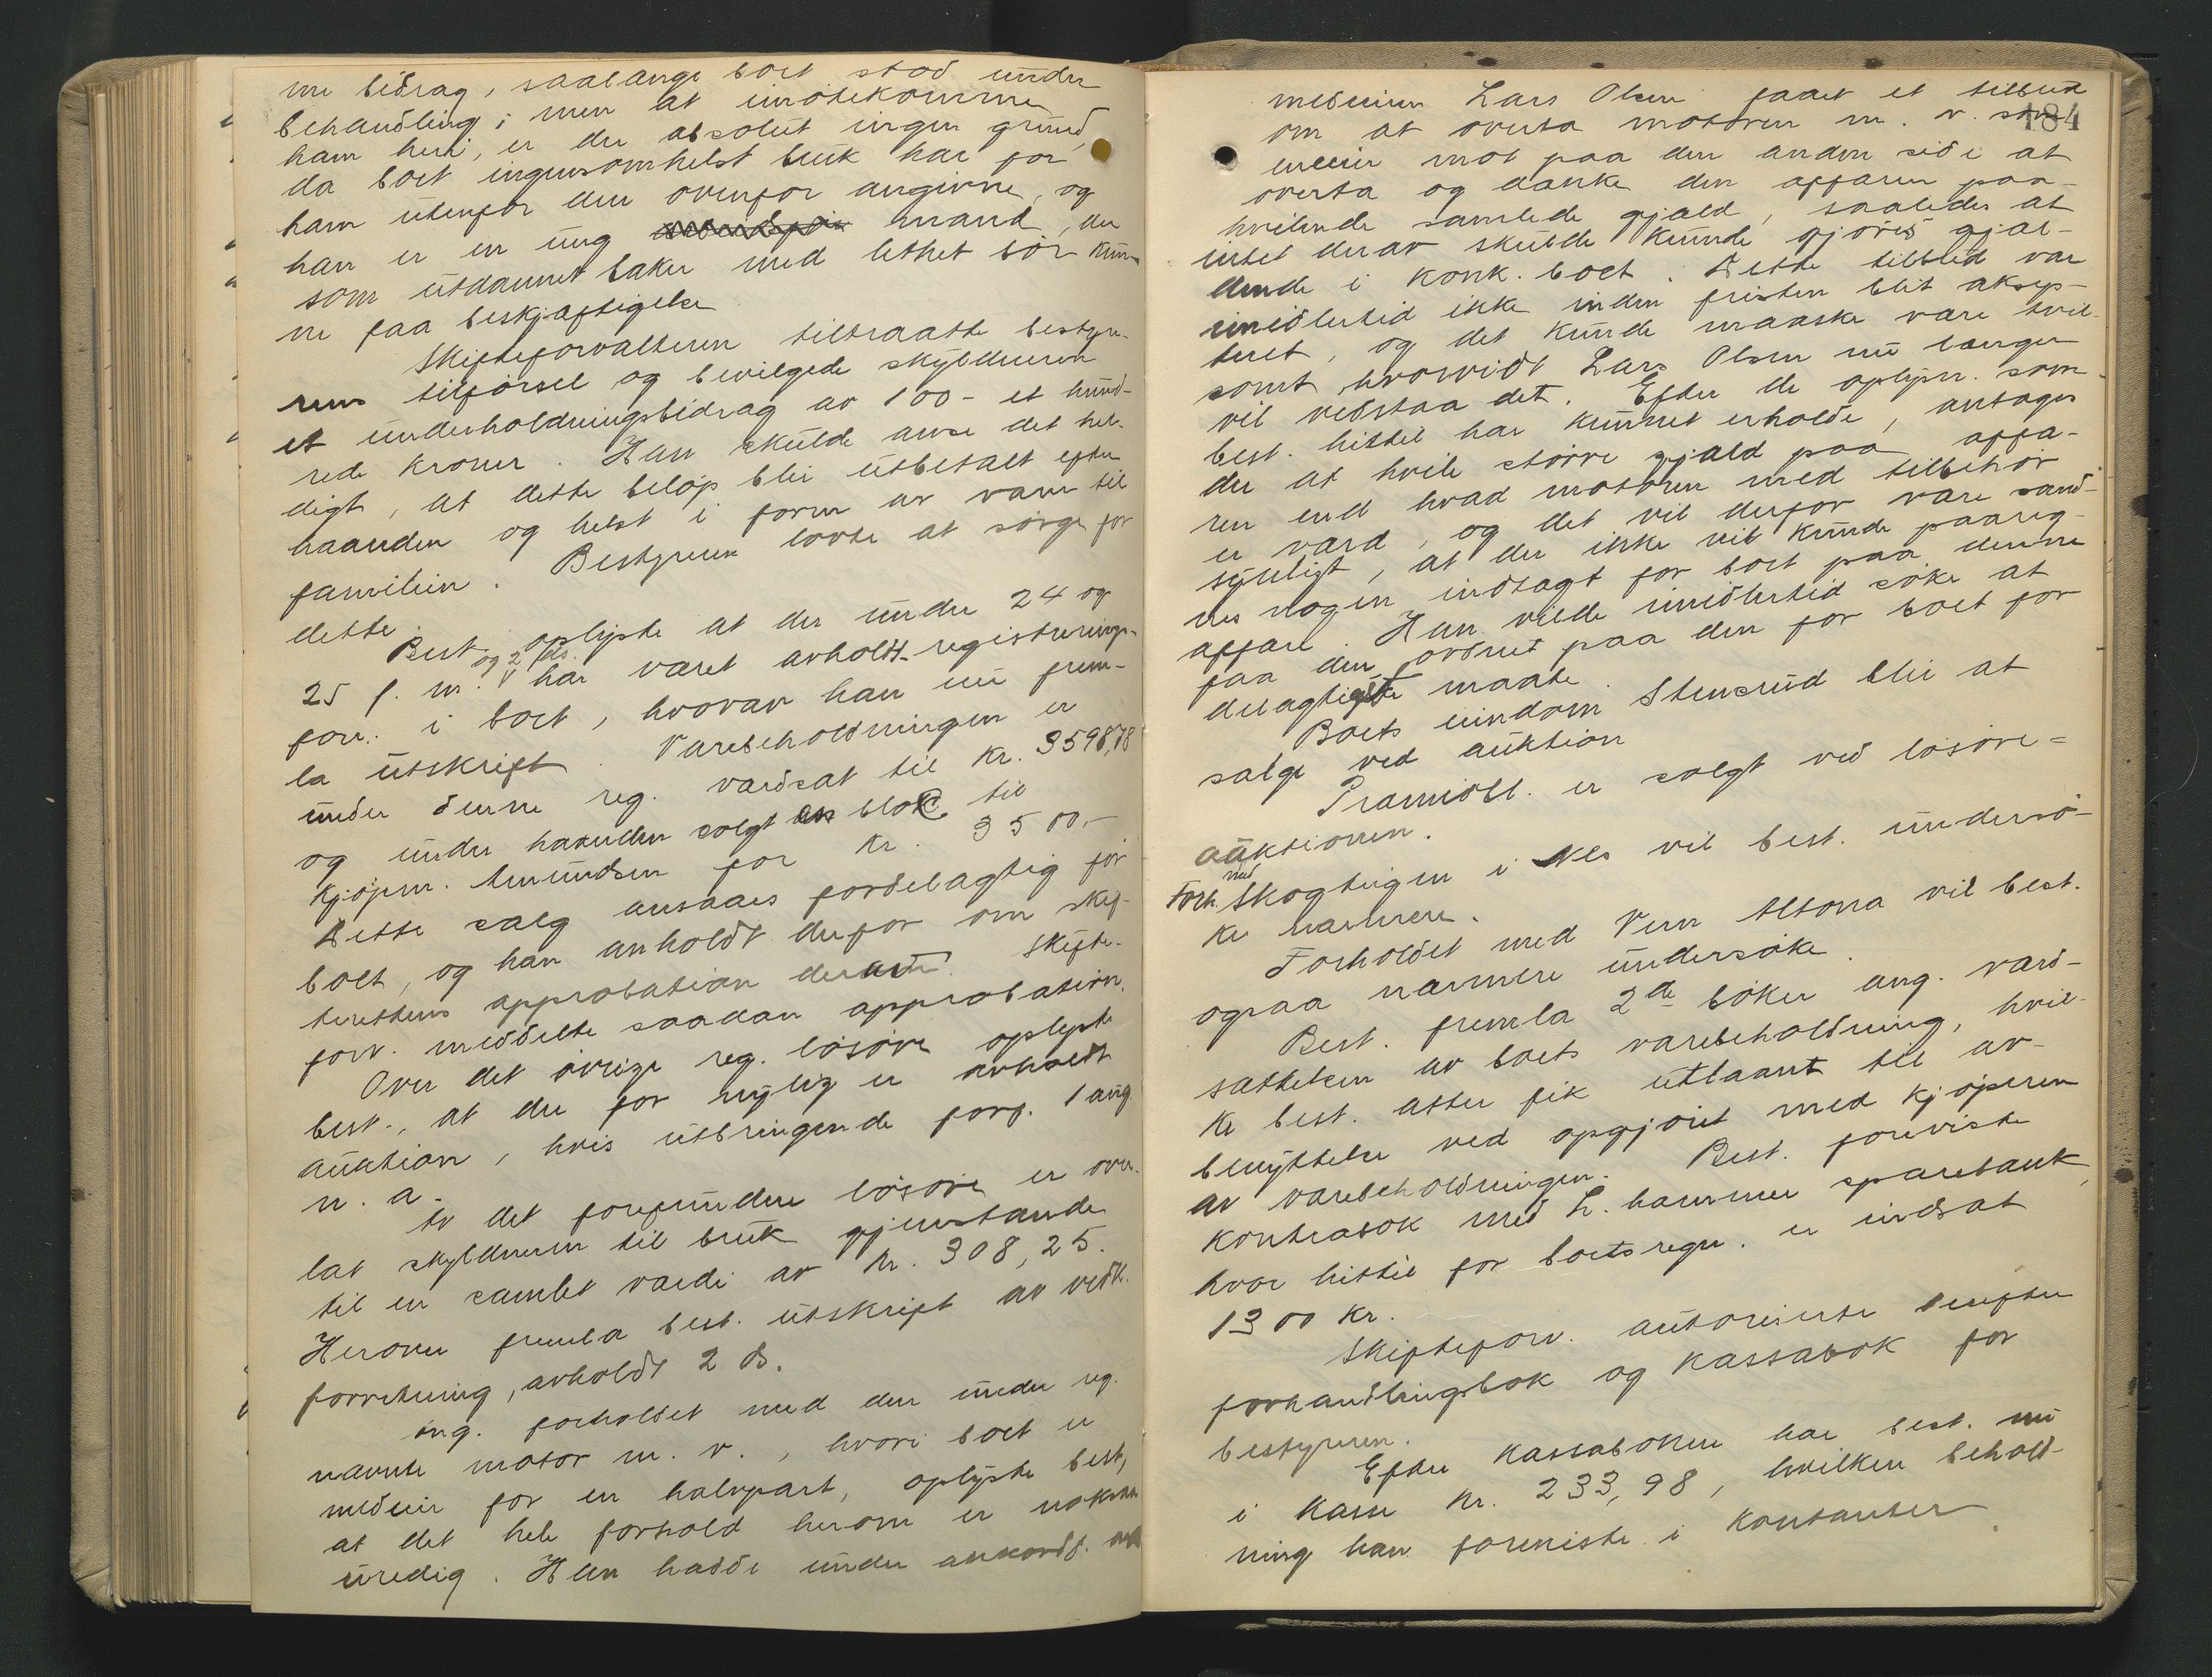 ne bidrag, saalænge boet stod under
behandling; men at imøtekomme
ham heri, er der absolut ingen grund,
da boet ingensomhelst bruk har for
ham utenfor den ovenfor angivne, og
han er en ung mand, der
som utdannet baker med lethet bør kun-
ne faa beskjæftigelse
Skifteforvalteren tiltraatte bestyre-
rens tilførsel og bevilgede skyldneren
et underholdningsbidrag av 100- et hund-
rede kroner. Han skulde anse det hel-
digt, at dette beløp blir utbetalt efter
haanden og helst i form av varer til
familien. Bestyreren lovte at sørge for
dette.
Best. oplyste at der under 24 og
og 2 ds.
25 f. m. har været avholdt registrerings-
forr. i boet, hvorav han nu frem-
la utskrift. Varebeholdningen er
under denne reg. værdsat til kr. 3598,78
og under haanden solgt en bloc til
kjøpm. Amundsen for kr. 3500,-
Dette salg ansaaes fordelagtig for
boet, og han anholdt derfor om skif-
terettens approbation derav. Skifte-
forv. meddelte saadan approbation.
Over det øvrige reg. løsøre oplyste
best., at der for nylig er avholdt
auktion, hvis utbringende forf. 1 aug.
n. a.
Av det forefundne løsøre er over-
lat skyldneren til bruk gjenstande
til en samlet værdi av kr. 308,25.
Herover fremla best. utskrift av vedk.
forretning, avholdt 2 ds.
Ang. forholdet med den under reg.
nævnte motor m. v., hvori boet er
medeier for en halvpart, oplyste best,
at det hele forhold herom er noksaa
uredig. Han hadde under akkordf.
184
medeieren Lars Olsen faaet et tilbud
om at overta motoren m. v. som
eneeier mot paa den anden side at
overta og dække den affæren paa-
hvilende samlede gjæld, saaledes at
intet derav skulde kunde gjøres gjæl-
dende i konk. boet. Dette tilbud var
imidlertid ikke inden fristen blit aksep-
teret, og det kunde maaske være tvil-
somt hvorvidt Lars Olsen nu længer
vil vedstaa det. Efter de oplysn. som
best. hittil har kunnet erholde, antages
der at hvile større gjæld paa affæ-
ren end hvad motoren med tilbehør
er værd, og det vil derfor være sand-
synligt, at der ikke vil kunde paareg-
nes nogen indtægt for boet paa denne
affære. Han vilde imidlertid søke at
faa den ordnet paa den for boet for
delagtigste maate.
Boets eiendom Stensrud blir at
sælge ved auktion
Præmiobl. er solgt ved løsøre=
auktionen.
Forh. med Skogteigen i Nes vil best. undersø-
ke nærmere.
Forholdet med Vern Altona vil best.
ogsaa nærmere undersøke.
Best. fremla 2de bøker ang. værd-
sættelsen av boets varebeholdning, hvil-
ke best. atter fik utlaant til av-
benyttelse ved opgjøret med kjøperen
av varebeholdningen. Best. foreviste
kontrabok med L.hammer sparebank,
hvor hittil for boets regn. er indsat
1300 kr.
Skifteforv. autoriserte derefter
forhandlingsbok og kassabok for
bestyreren.
Efter kassaboken har best. nu
i kasse kr. 233,98, hvilken behold-
ning han foreviste i kontanter.